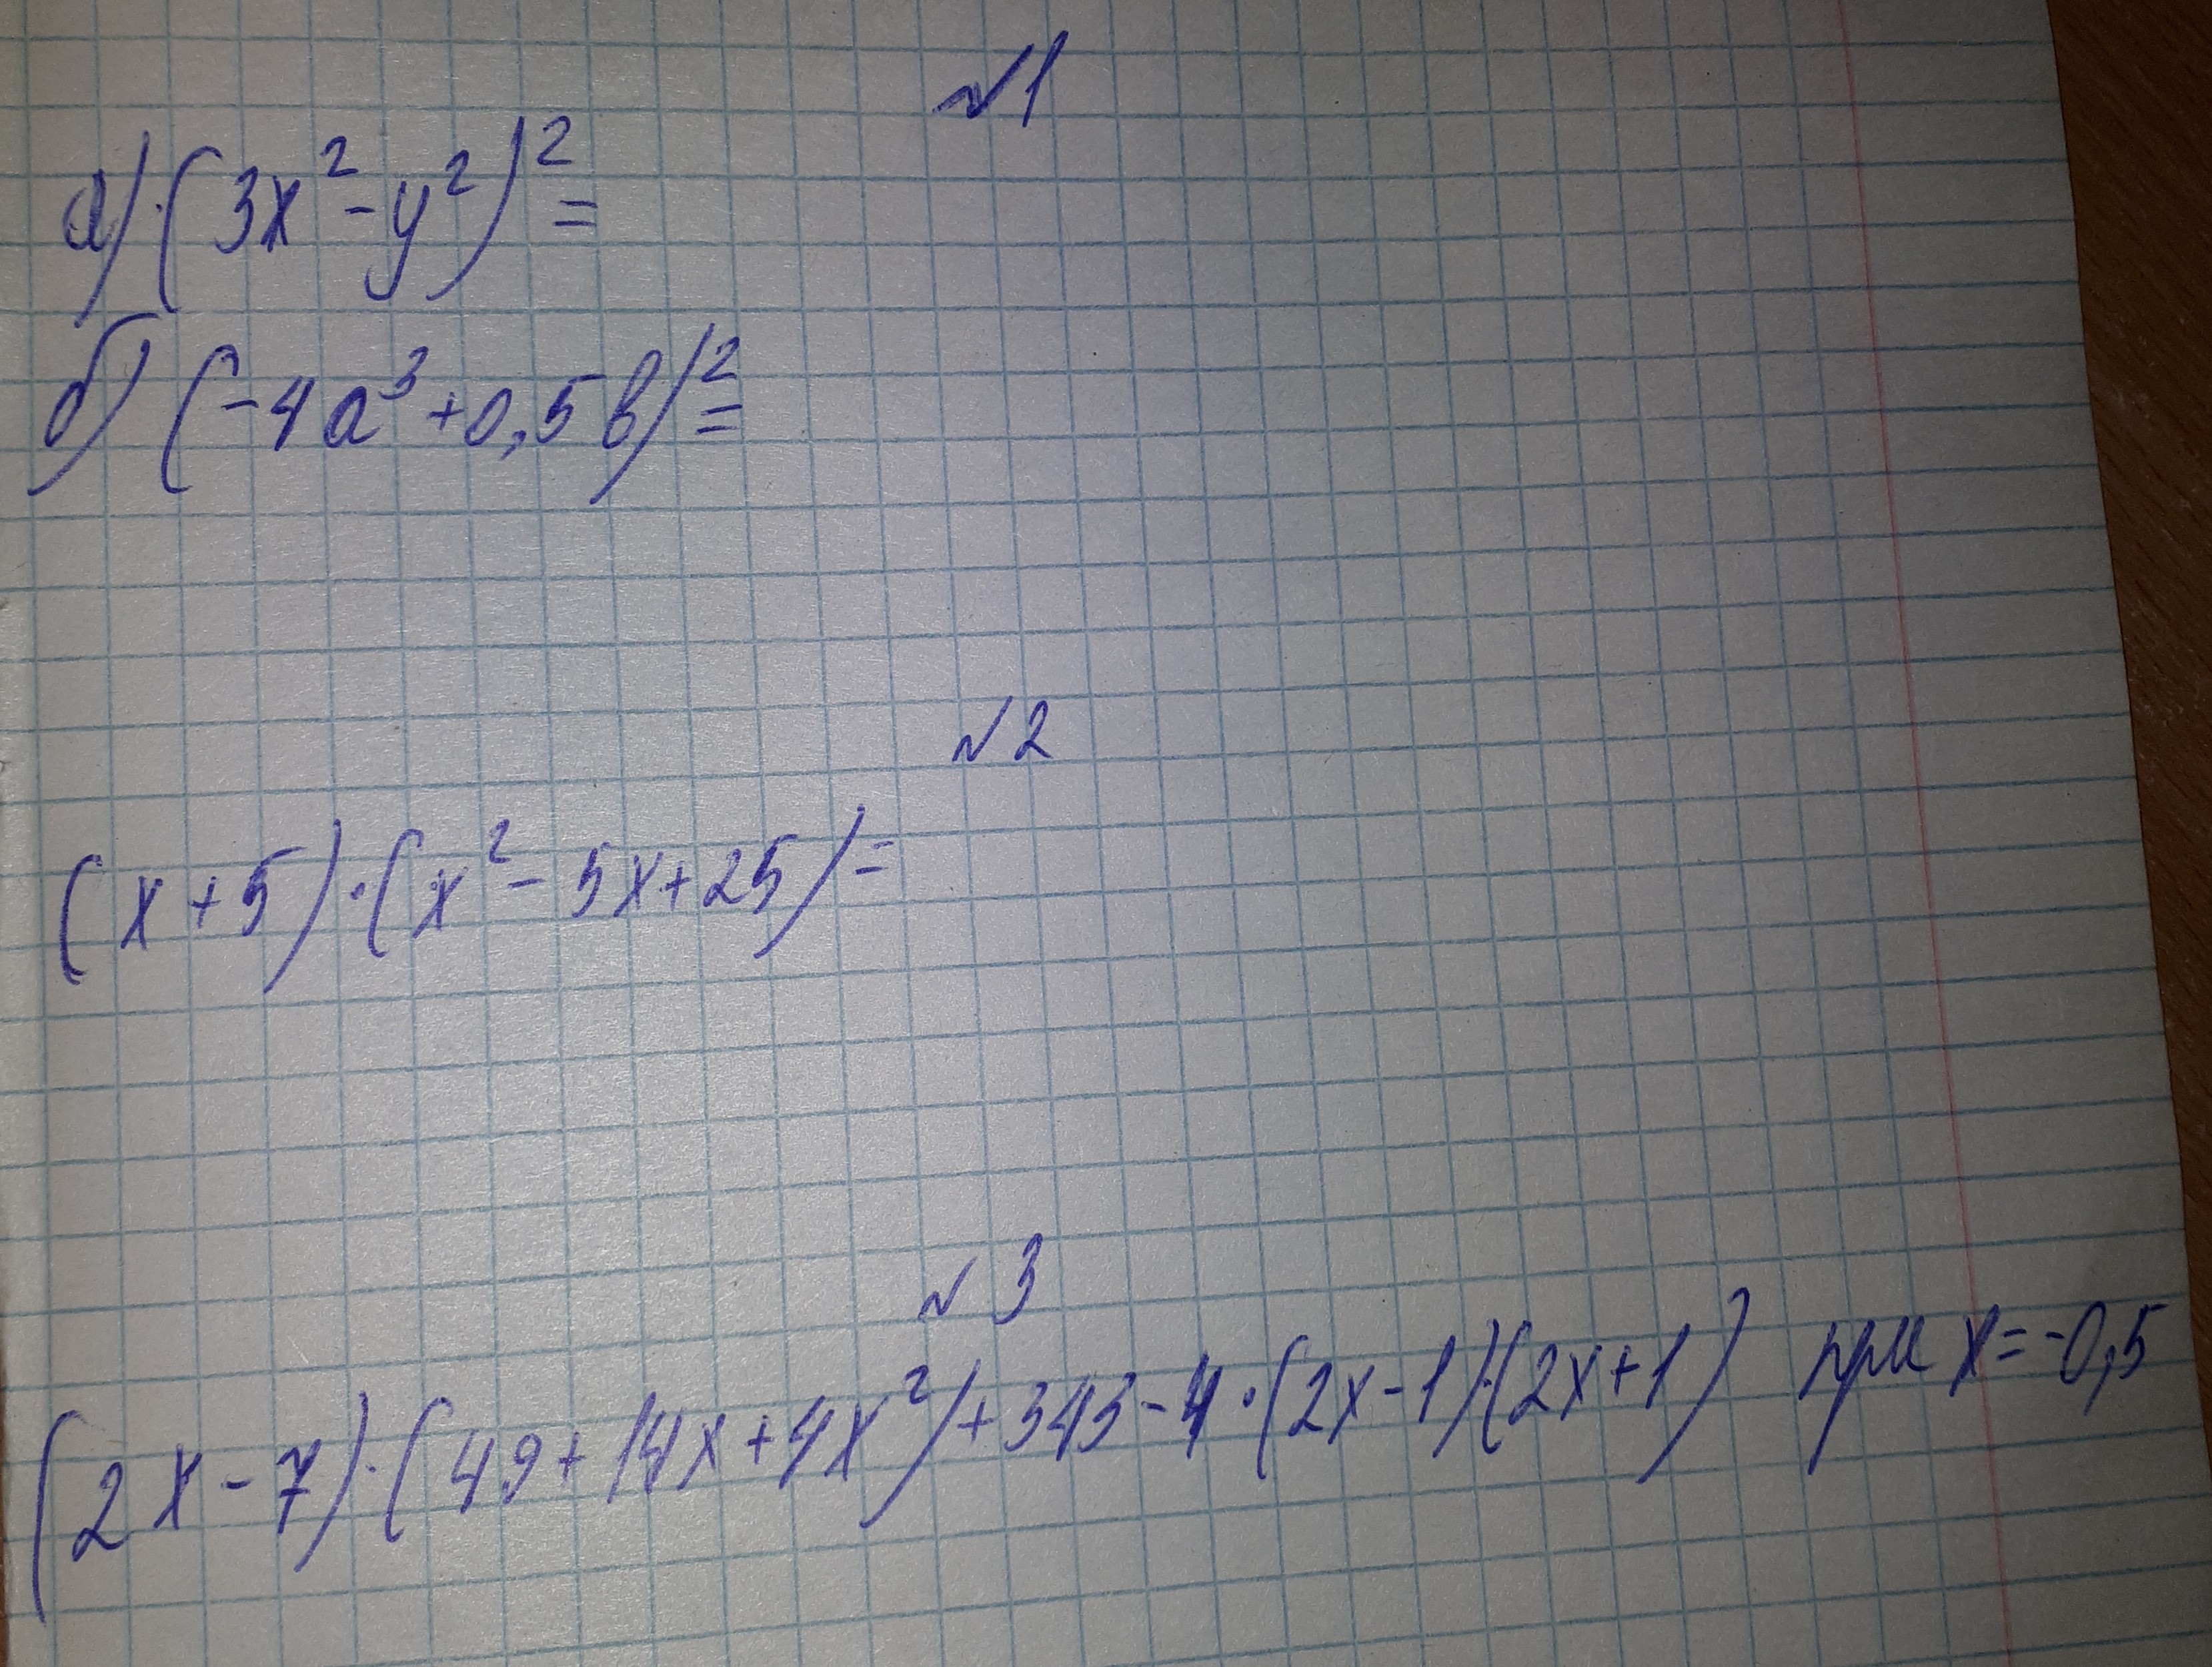 №1
а) (3x²-y²)²=
б) (-4a³+0,5b)²=
№2
(x+5)·(x²-5x+25)=
№3
(2x-7)·(49+14x+4x²)+343-4·(2x-1)·(2x+1) при x=-0,5